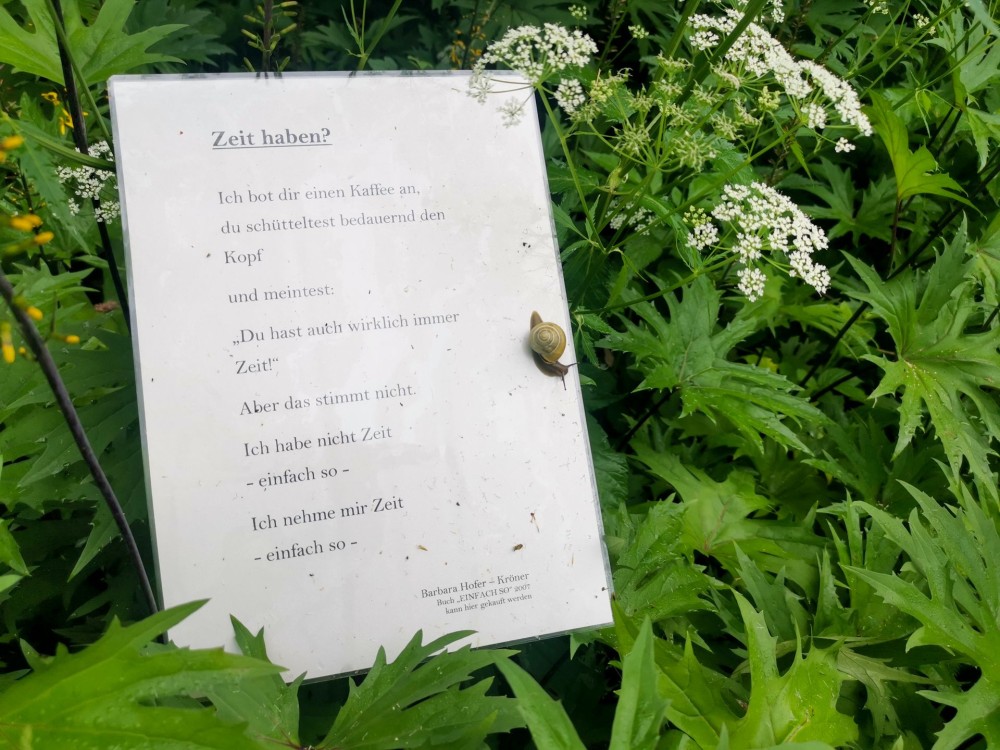 Zeit haben?
Ich bot dir einen Kaffee an,
du schütteltest bedauernd den
Kopf
und meintest:
„Du hast auch wirklich immer
Zeit!“
Aber das stimmt nicht.
Ich habe nicht Zeit
- einfach so -
Ich nehme mir Zeit
- einfach so -
Barbara Hofer – Kröner
Buch „EINFACH SO“ 2007
kann hier gekauft werden